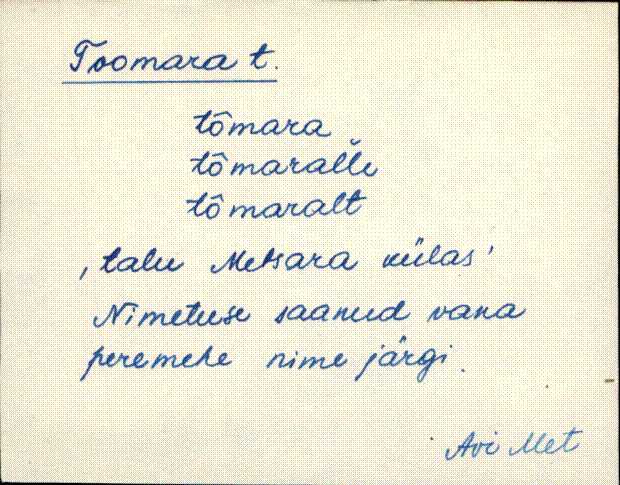 Toomara t.
tômara
tômaralle
tômaralt
, talu Metsara külas'
Nimetuse saanud vana
peremehe nime järgi.
Avi Met